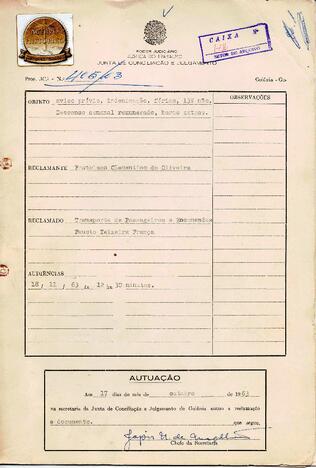 PODER JUDICIÁRIO
JUSTIÇA DO TRABALHO
JUNTA DE CONCILIAÇÃO E JULGAMENTO
CAIXA Nº
SETOR DE ARQUIVO
Proc. JCJ - N.
Goiânia - Go
OBJETO aviso prévio, indenização, férias, 13º
Descanso semanal remunerado, horas extras.
OBSERVAÇÕES
RECLAMANTE Clementino de Oliveira
RECLAMADO Transporte de Passageiros e Encomendas
Fausto Teixeira França
AUDIÊNCIAS
18, 12, 63 às 12 hs 30 minutos.
AUTUAÇÃO
Aos 17 dias do mês de outubro de 1963
na secretaria da Junta de Conciliação e Julgamento de Goiânia autuo a reclamação
e documento. que segue.
Chefe da Secretaria